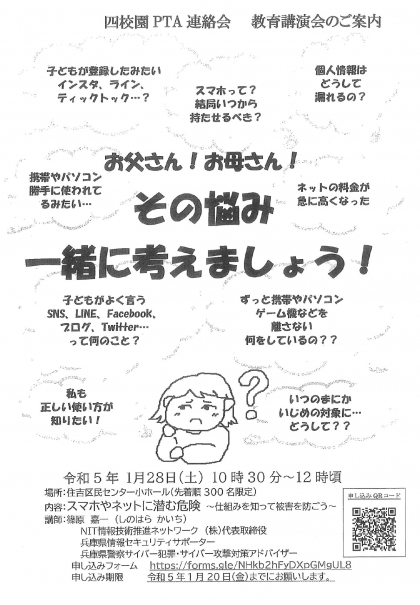 四校園 PTA 連絡会　教育講演会のご案内
子どもが登録したみたい
インスタ、ライン、
ティックトック…？
スマホって？
結局いつから
持たせるべき？
個人情報は
どうして
漏れるの？
お父さん！お母さん！
携帯やパソコン
勝手に使われて
るみたい…
その悩み
ネットの料金が
急に高くなった
一緒に考えましょう！
子どもがよく言う
SNS、LINE、Facebook、
ブログ、Twitter…
って何のこと？
ずっと携帯やパソコン
ゲーム機などを
離さない
何をしているの？？
私も
正しい使い方が
知りたい！
いつのまにか
いじめの対象に…
どうして？？
令和５年 １月２８日(土) １０時３０分～１２時頃
場所：住吉区民センター小ホール(先着順３００名限定)
内容：スマホやネットに潜む危険 ～仕組みを知って被害を防ごう～
講師：篠原 嘉一 (しのはら かいち)
NIT情報技術推進ネットワーク (株)代表取締役
兵庫県情報セキュリティサポーター
兵庫県警察サイバー犯罪・サイバー攻撃対策アドバイザー
申し込みQRコード
申し込みフォーム https://forms.gle/NHkb2hFyDXoGMgUL8
申し込み期限 令和５年１月２０日(金)までにお願いします。